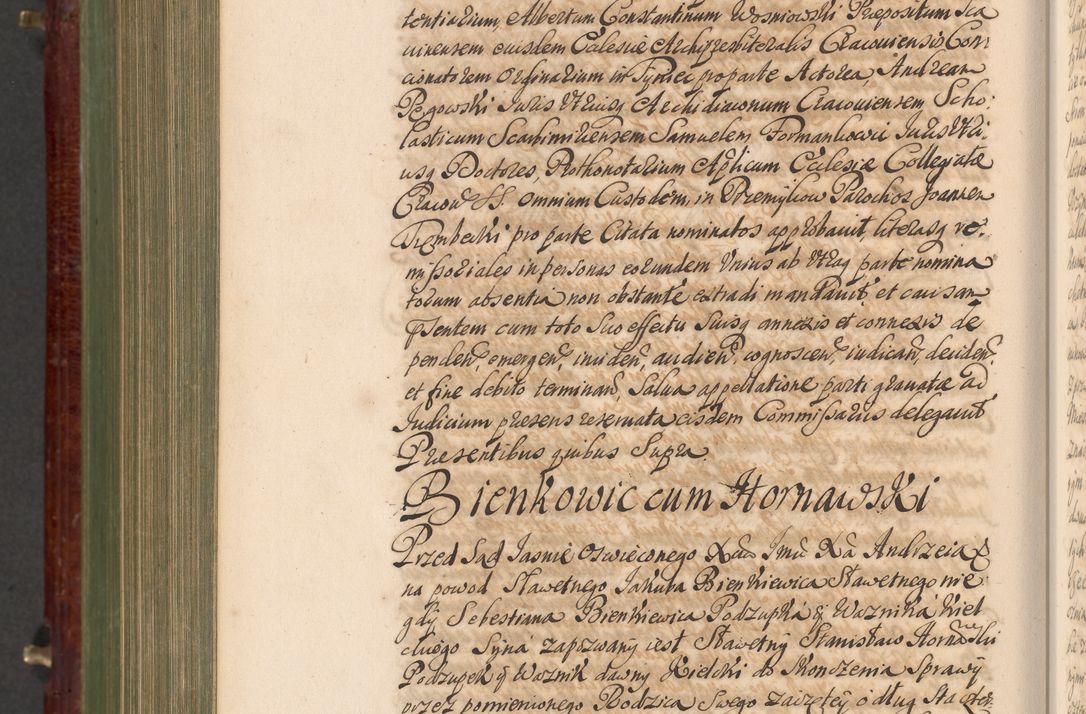 tentiarium, Albertum Constantinum Wosniowski Præpositum Ska
uinensem eiusdem Ecclesiæ Archipresbiteralis Cracouiensis Con
cionatorem Ordinarium in Tyniec pro parte Actorea, Andream
Pęgowski Juris Vtriusq Archidiaconum Cracouiensem Scho:
lasticum Scarbimiriensem Samuelem Formankowic Juris Vtri.
usq Doctores, Prothonotarium Aplicum Ecclesiæ Collegiatæ
Cracou SS. omnium Custodem, in Przemykow Parochos Joannem
Trembecki pro parte Citata nominatos approbauit, literasq re:
missoriales in personas eorundem Vnius ab Vtraq parte nomina
torum absentia non obstante extradi mandauit, et causam
pñsentem cum toto suo effectu suisq annexis et connexis de
penden, emergen, inciden, audien, cognoscen, iudican, deciden.
et fine debito terminan, Salua appellatione parti grauatæ ad
Judicium præsens reseruata eisdem Commissariis delegauit
Præsentibus quibus Supra.
Bienkowic cum Hornawski
Przed Sąd Jasnie Oswieconego Xcia Jmci Xa Andrzeia &
na powod Sławetnego Jakuba Bienkiewica Sławetnego nie
gdy Sebestiana Bienkiewica Podzupka y Waznika Kiel
ckiego Syna zapozwany iest Sławetny Stanisław Hornawski
Podzupek y Waznik dawny Kielcki do skonczenia Sprawy
przez pomienionego Rodzica Swego zaczętey o dług Sta czter